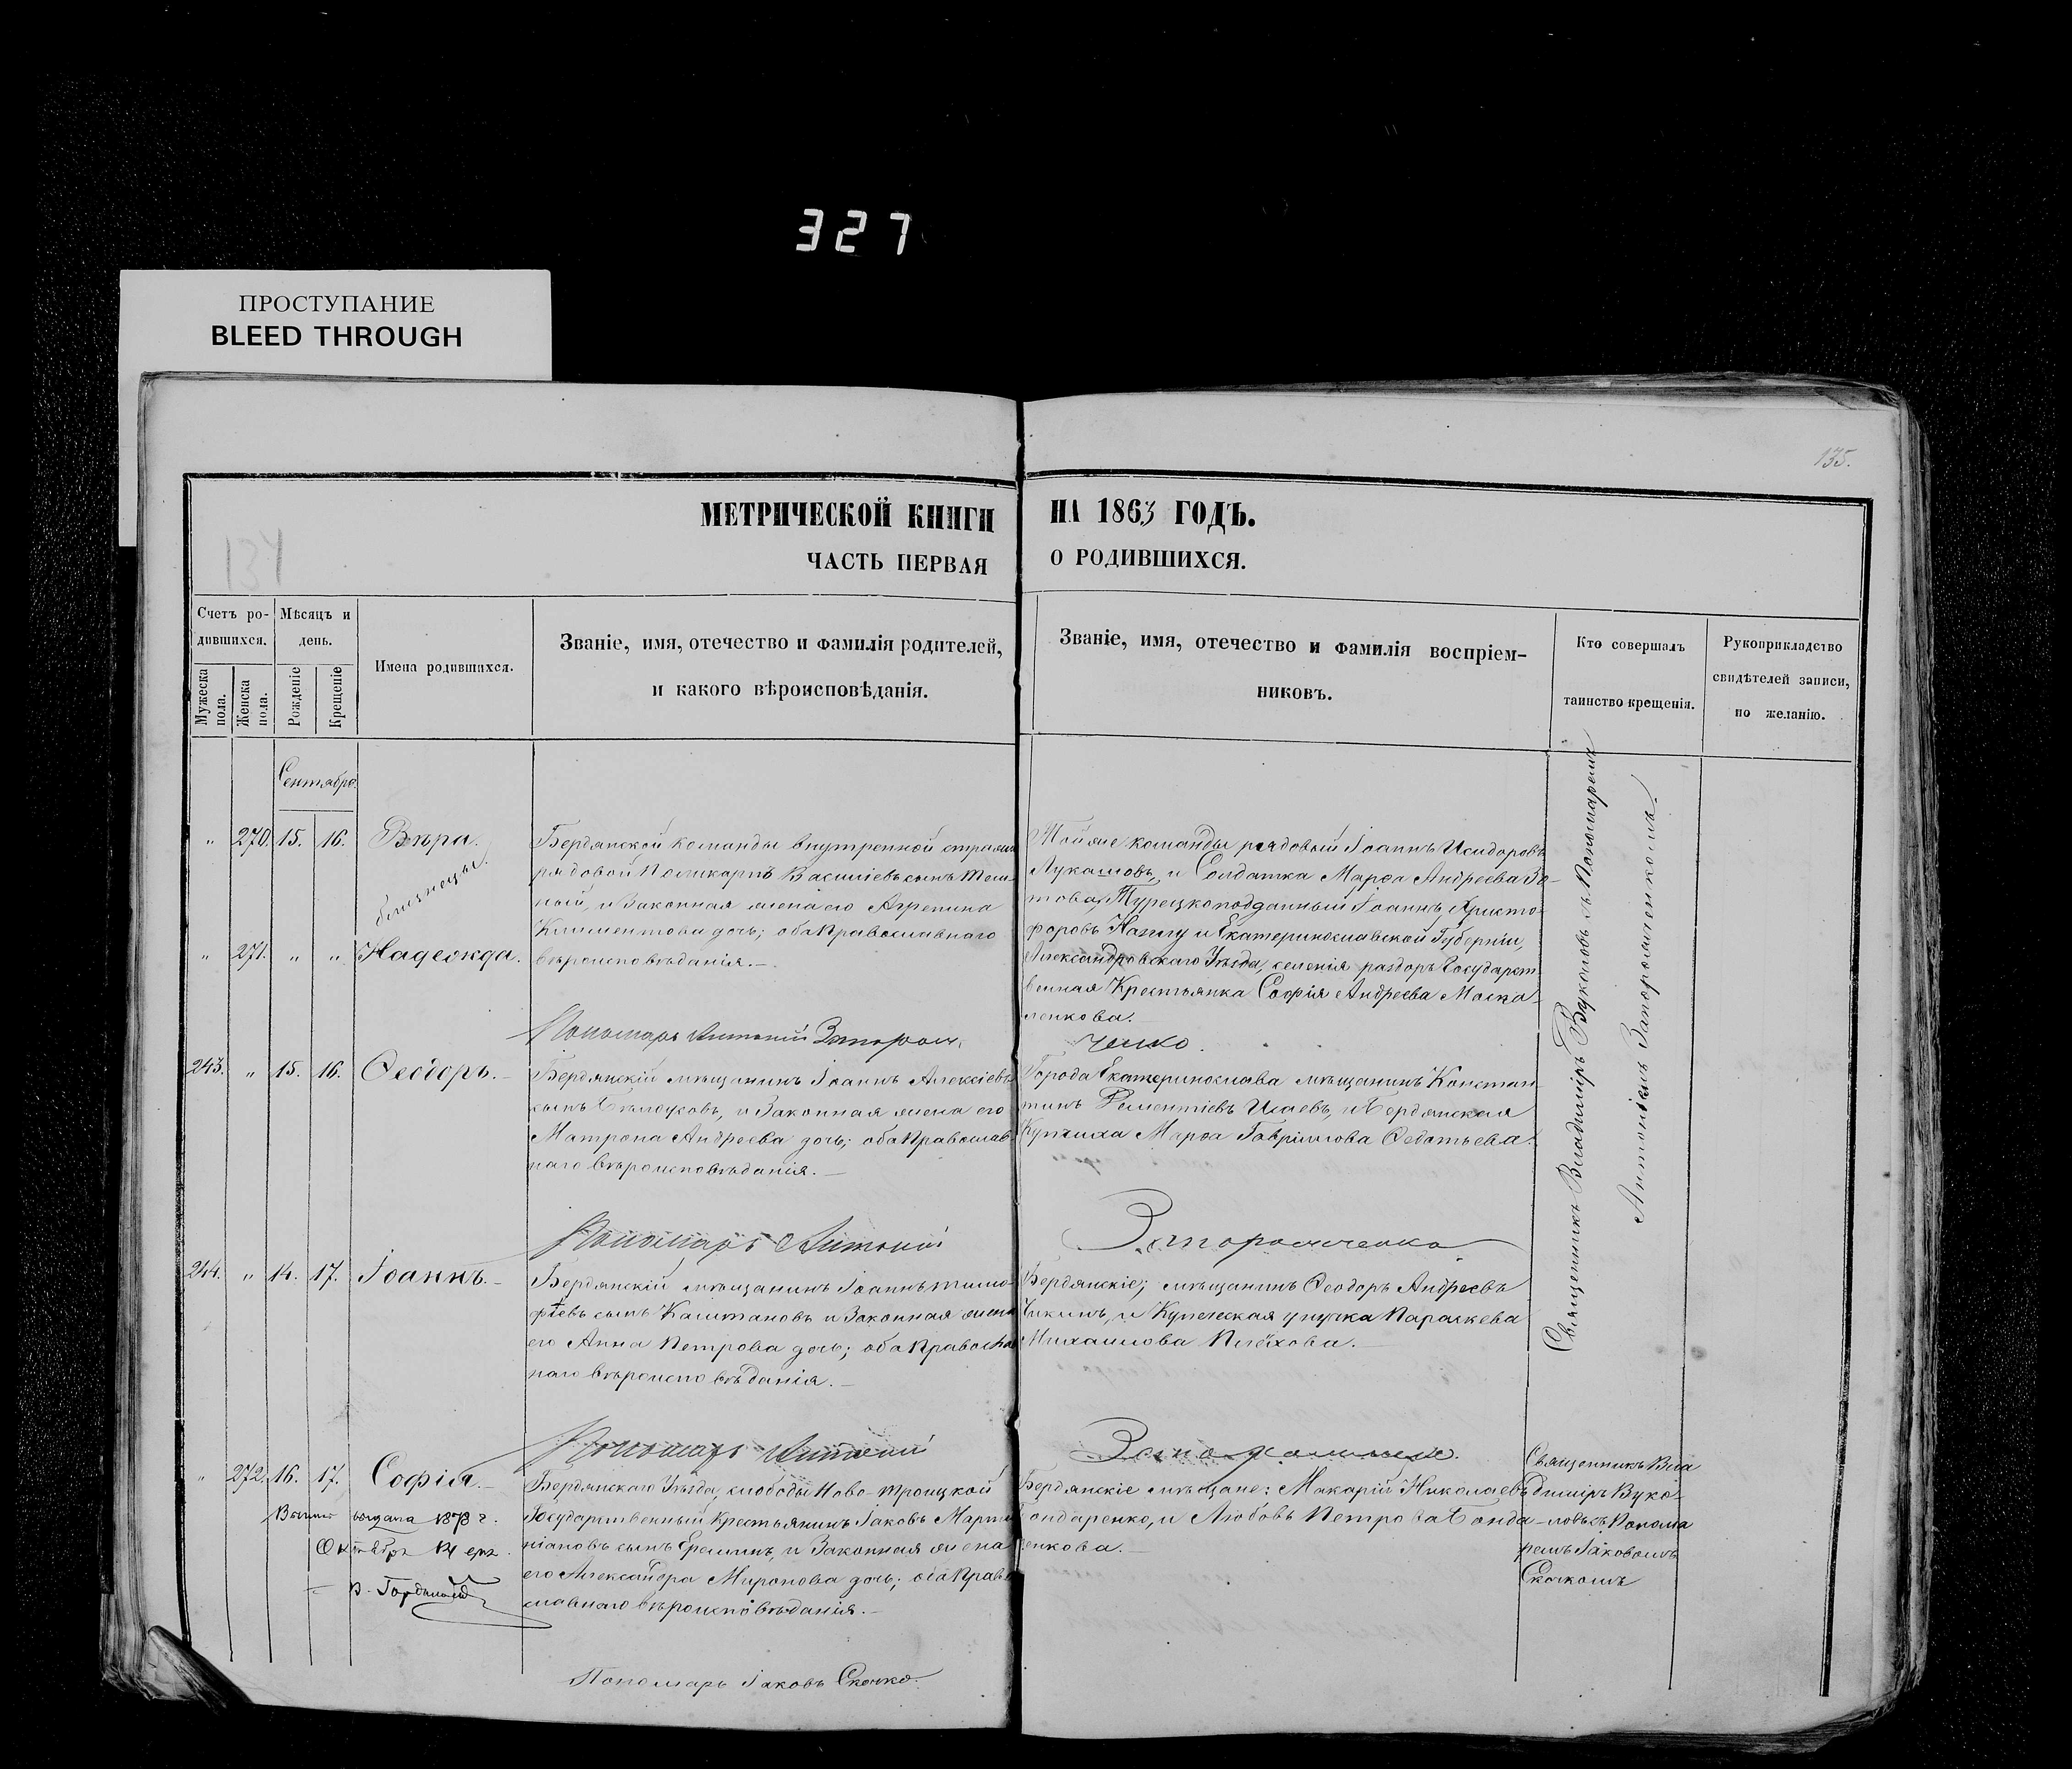 327
ПРОСТУПАНИЕ
BLEED THROUGH
135.
134
МЕТРИЧЕСКОЙ КНИГИ НА 1863 ГОДЪ.
ЧАСТЬ ПЕРВАЯ О РОДИВШИХСЯ.
Счетъ ро-
дившихся.
Мужеска пола.
Женска пола.
Мѣсяцъ и
день.
Рожденіе
Крещеніе
Имена родившихся.
Званіе, имя, отечество и фамилія родителей,
и какого вѣроисповѣданія.
Званіе, имя, отечество и фамилія воспріем-
никовъ.
Кто совершалъ
таинство крещенія.
Рукоприкладство
свидѣтелей записи,
по желанію.
Сентябрь
" 270. 15. 16. Вѣра.
близнецы.
" 271. " " Надежда.
Бердянской команды внутренной стражи
рядовой Поликарпъ Василіевъ сынъ
ной, и Законная жена его Агрепина
Климентова дочь; оба Православнаго
вѣроисповѣданія.—
Той же команды рядовый Іоаннъ Исидоровъ
Лукашовъ, и Солдатка Марѳа Андреева Зо-
това, Турецкоподданный Іоаннъ Христо-
форовъ и Екатеринославской Губерніи,
Александровскаго Уѣзда, селенія раздоръ Государст
венная Крестьянка Софія Андреева Моска-
ленкова.
Пономарь Антоній Запорож-
ченко.
243. " 15. 16. Ѳеодоръ.
Бердянскій мѣщанинъ Іоаннъ Алексіевъ
сынъ и Законная жена его
Матрона Андреева дочь; оба Православ-
наго вѣроисповѣданія.—
Города Екатеринослава мѣщанинъ Констан-
тинъ Исаевъ, и Бердянская
Купчиха Марѳа Гавріилова Ѳедотьева.
Пономарь Антоній Запорожченко
244. " 14. 17. Іоаннъ.
Бердянскій мѣщанинъ Іоаннъ тимо-
фѣевъ сынъ Каштановъ и Законная жена
его Анна Петрова дочь; оба Православ
наго вѣроисповѣданія.—
Бердянскіе; мѣщанинъ Ѳеодоръ Андреевъ
и Купеческая Параскева
Михаилова Плѣхова.—
Пономарь Антоній Запорожченко.
Священникъ Владиміръ Вуколовъ съ Пономаремъ
Антоніемъ Запорожченкомъ.
" 272. 16. 17. Софія.
выдана 1878 г.
Октября 14
Бердянскаго Уѣзда, слободы Ново-троицкой
Государственный Крестьянинъ Іаковъ Марти
ніановъ сынъ Ереминъ, и Законная жена
его Александра Миронова дочь; оба Право
славнаго вѣроисповѣданія.—
Бердянскіе мѣщане: Макарій Николаевъ
Бондаренко, и Любовь Петрова Бонда-
ренкова.—
Священникъ Вла
диміръ Вуко-
ловъ съ Понома
ремъ Іаковомъ
Скочкомъ
Пономарь Іаковъ Скочко.